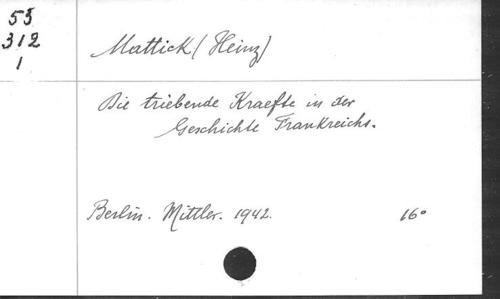 53
312
1
Mattick (Heinz)
Die triebende Kraefte in der
Geschichte Frankreichs.
Berlin. Mittler. 1942. 16°